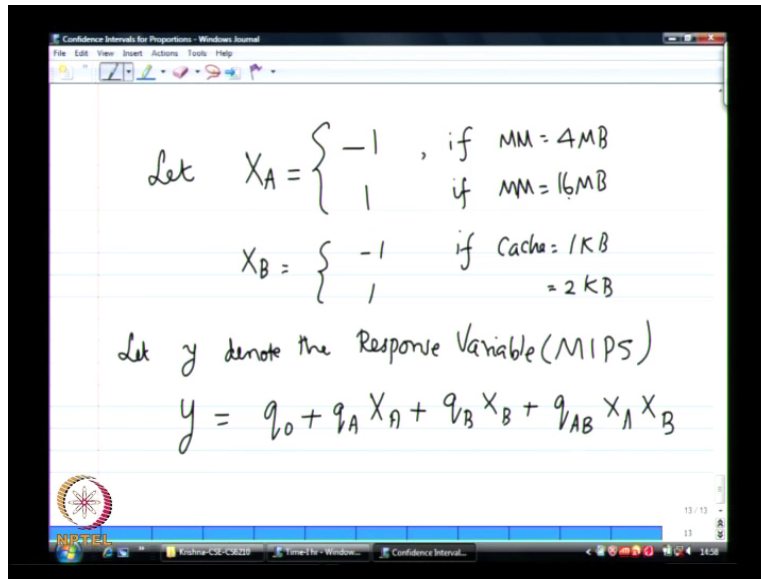 Confidence Intervals for Proportions - Windows Journal
File Edit View Insert Actions Tools Help
Let X_A = { -1 , if MM = 4MB
1 if MM = 16MB
X_B = { -1 if Cache = 1KB
1 = 2KB
Let y denote the Response Variable (MIPS)
y = q_0 + q_A X_A + q_B X_B + q_AB X_A X_B
13 / 13
13
NPTEL
Krishna-CSE-CS6210 Time-1 hr - Window... Confidence Interval... 14:58